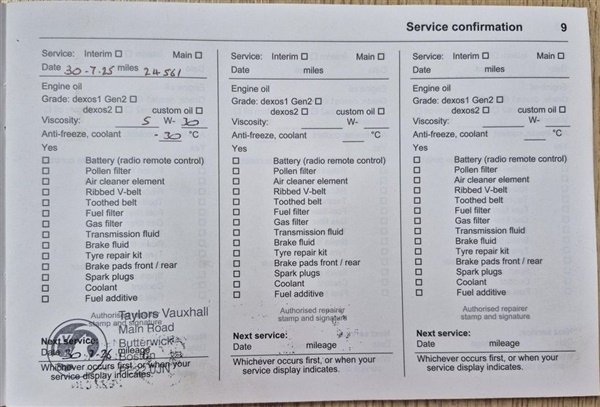 Service confirmation 9
Service: Interim ☐ Main ☐
Date 30-7-25 miles 24561
Engine oil
Grade: dexos1 Gen2 ☐
dexos2 ☐ custom oil ☐
Viscosity: 5 W- 30
Anti-freeze, coolant -30 °C
Yes
☐ Battery (radio remote control)
☐ Pollen filter
☐ Air cleaner element
☐ Ribbed V-belt
☐ Toothed belt
☐ Fuel filter
☐ Gas filter
☐ Transmission fluid
☐ Brake fluid
☐ Tyre repair kit
☐ Brake pads front / rear
☐ Spark plugs
☐ Coolant
☐ Fuel additive
Authorised repairer
stamp and signature
Taylors Vauxhall
Main Road
Butterwick
Boston
Next service:
Date 30-7-26 mileage
Whichever occurs first, or when your
service display indicates.
Service: Interim ☐ Main ☐
Date miles
Engine oil
Grade: dexos1 Gen2 ☐
dexos2 ☐ custom oil ☐
Viscosity: W-
Anti-freeze, coolant °C
Yes
☐ Battery (radio remote control)
☐ Pollen filter
☐ Air cleaner element
☐ Ribbed V-belt
☐ Toothed belt
☐ Fuel filter
☐ Gas filter
☐ Transmission fluid
☐ Brake fluid
☐ Tyre repair kit
☐ Brake pads front / rear
☐ Spark plugs
☐ Coolant
☐ Fuel additive
Authorised repairer
stamp and signature
Next service:
Date mileage
Whichever occurs first, or when your
service display indicates.
Service: Interim ☐ Main ☐
Date miles
Engine oil
Grade: dexos1 Gen2 ☐
dexos2 ☐ custom oil ☐
Viscosity: W-
Anti-freeze, coolant °C
Yes
☐ Battery (radio remote control)
☐ Pollen filter
☐ Air cleaner element
☐ Ribbed V-belt
☐ Toothed belt
☐ Fuel filter
☐ Gas filter
☐ Transmission fluid
☐ Brake fluid
☐ Tyre repair kit
☐ Brake pads front / rear
☐ Spark plugs
☐ Coolant
☐ Fuel additive
Authorised repairer
stamp and signature
Next service:
Date mileage
Whichever occurs first, or when your
service display indicates.